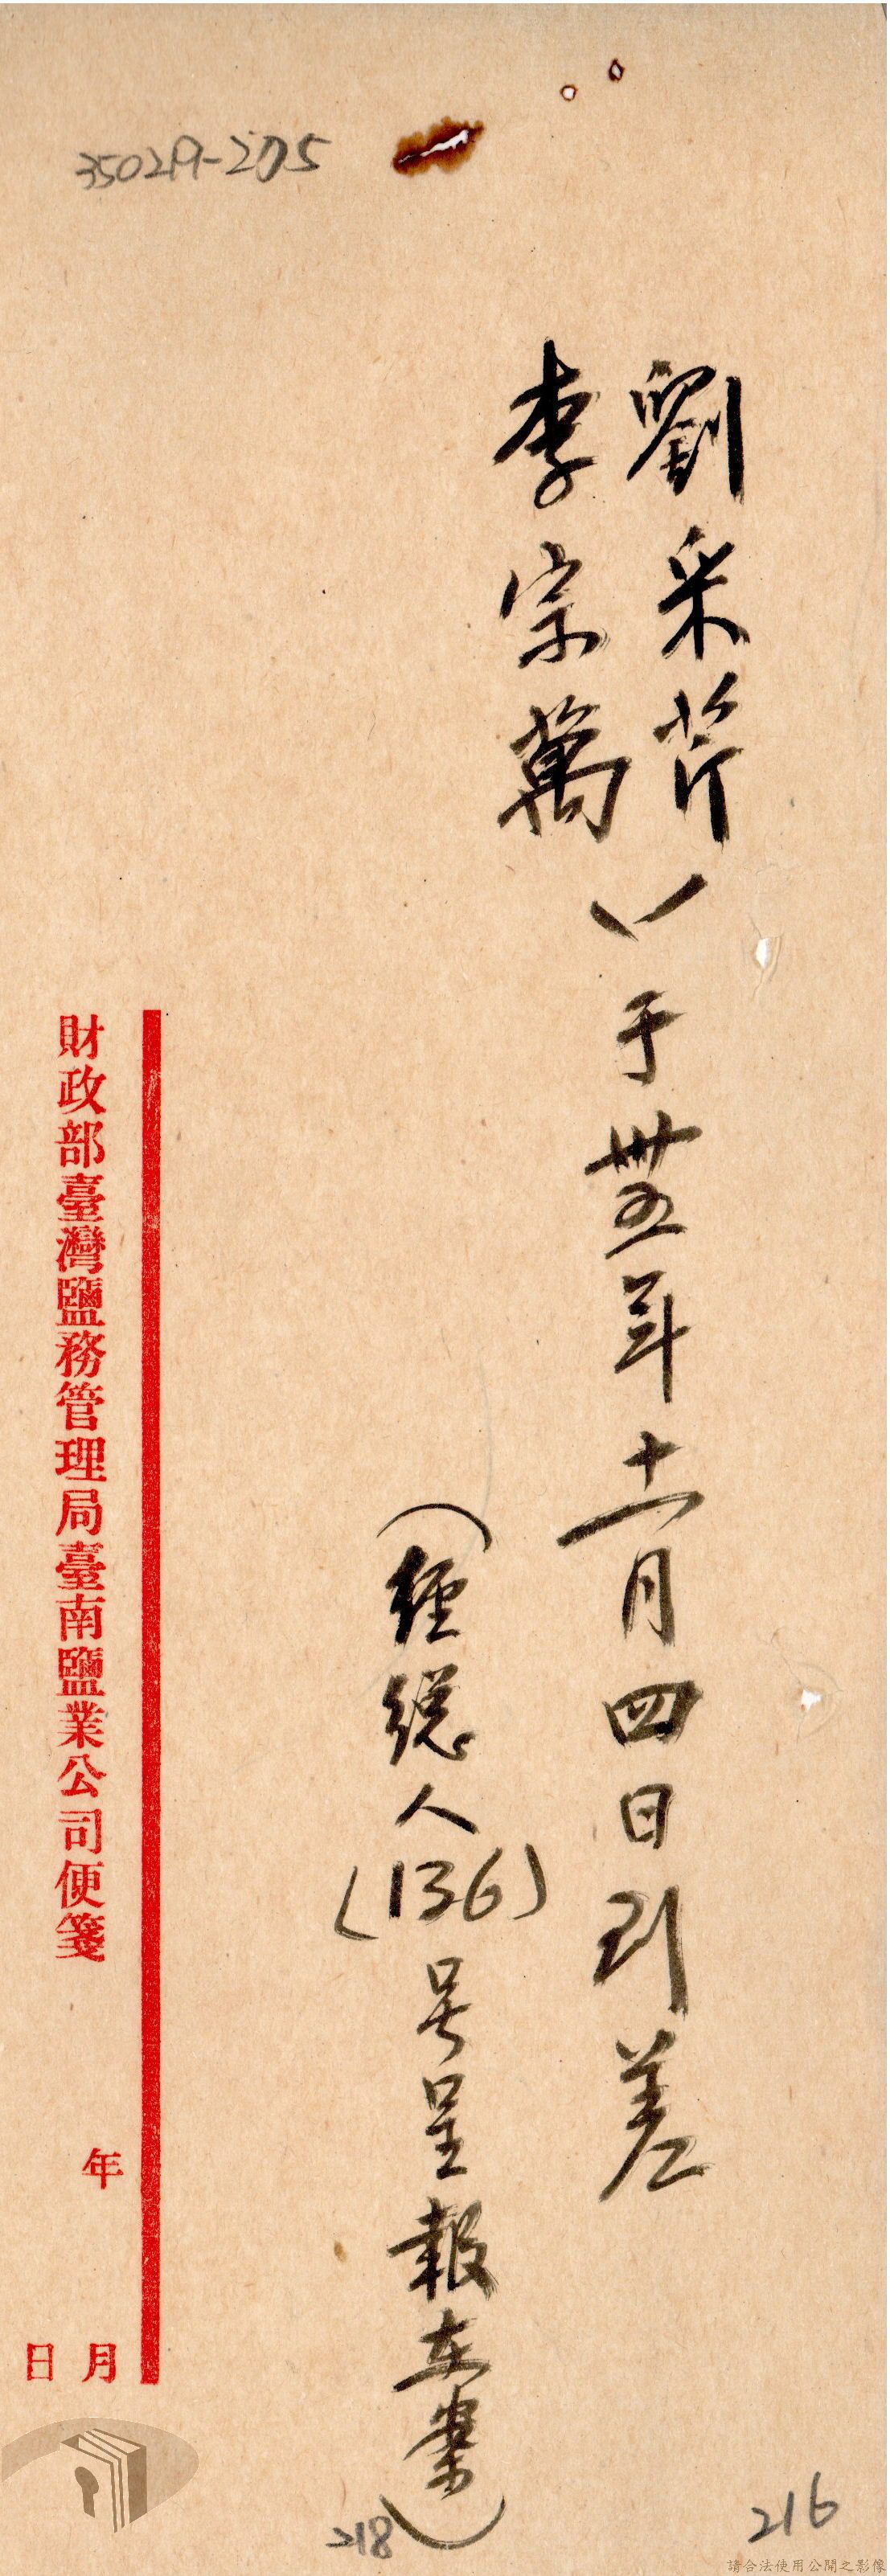 35029-205
劉采芹
李宗萬
于卅五年十一月四日到差
(經總人(136)号呈報在案)
財政部臺灣鹽務管理局臺南鹽業公司便箋
年
月
日
218
216
請合法使用公開之影像